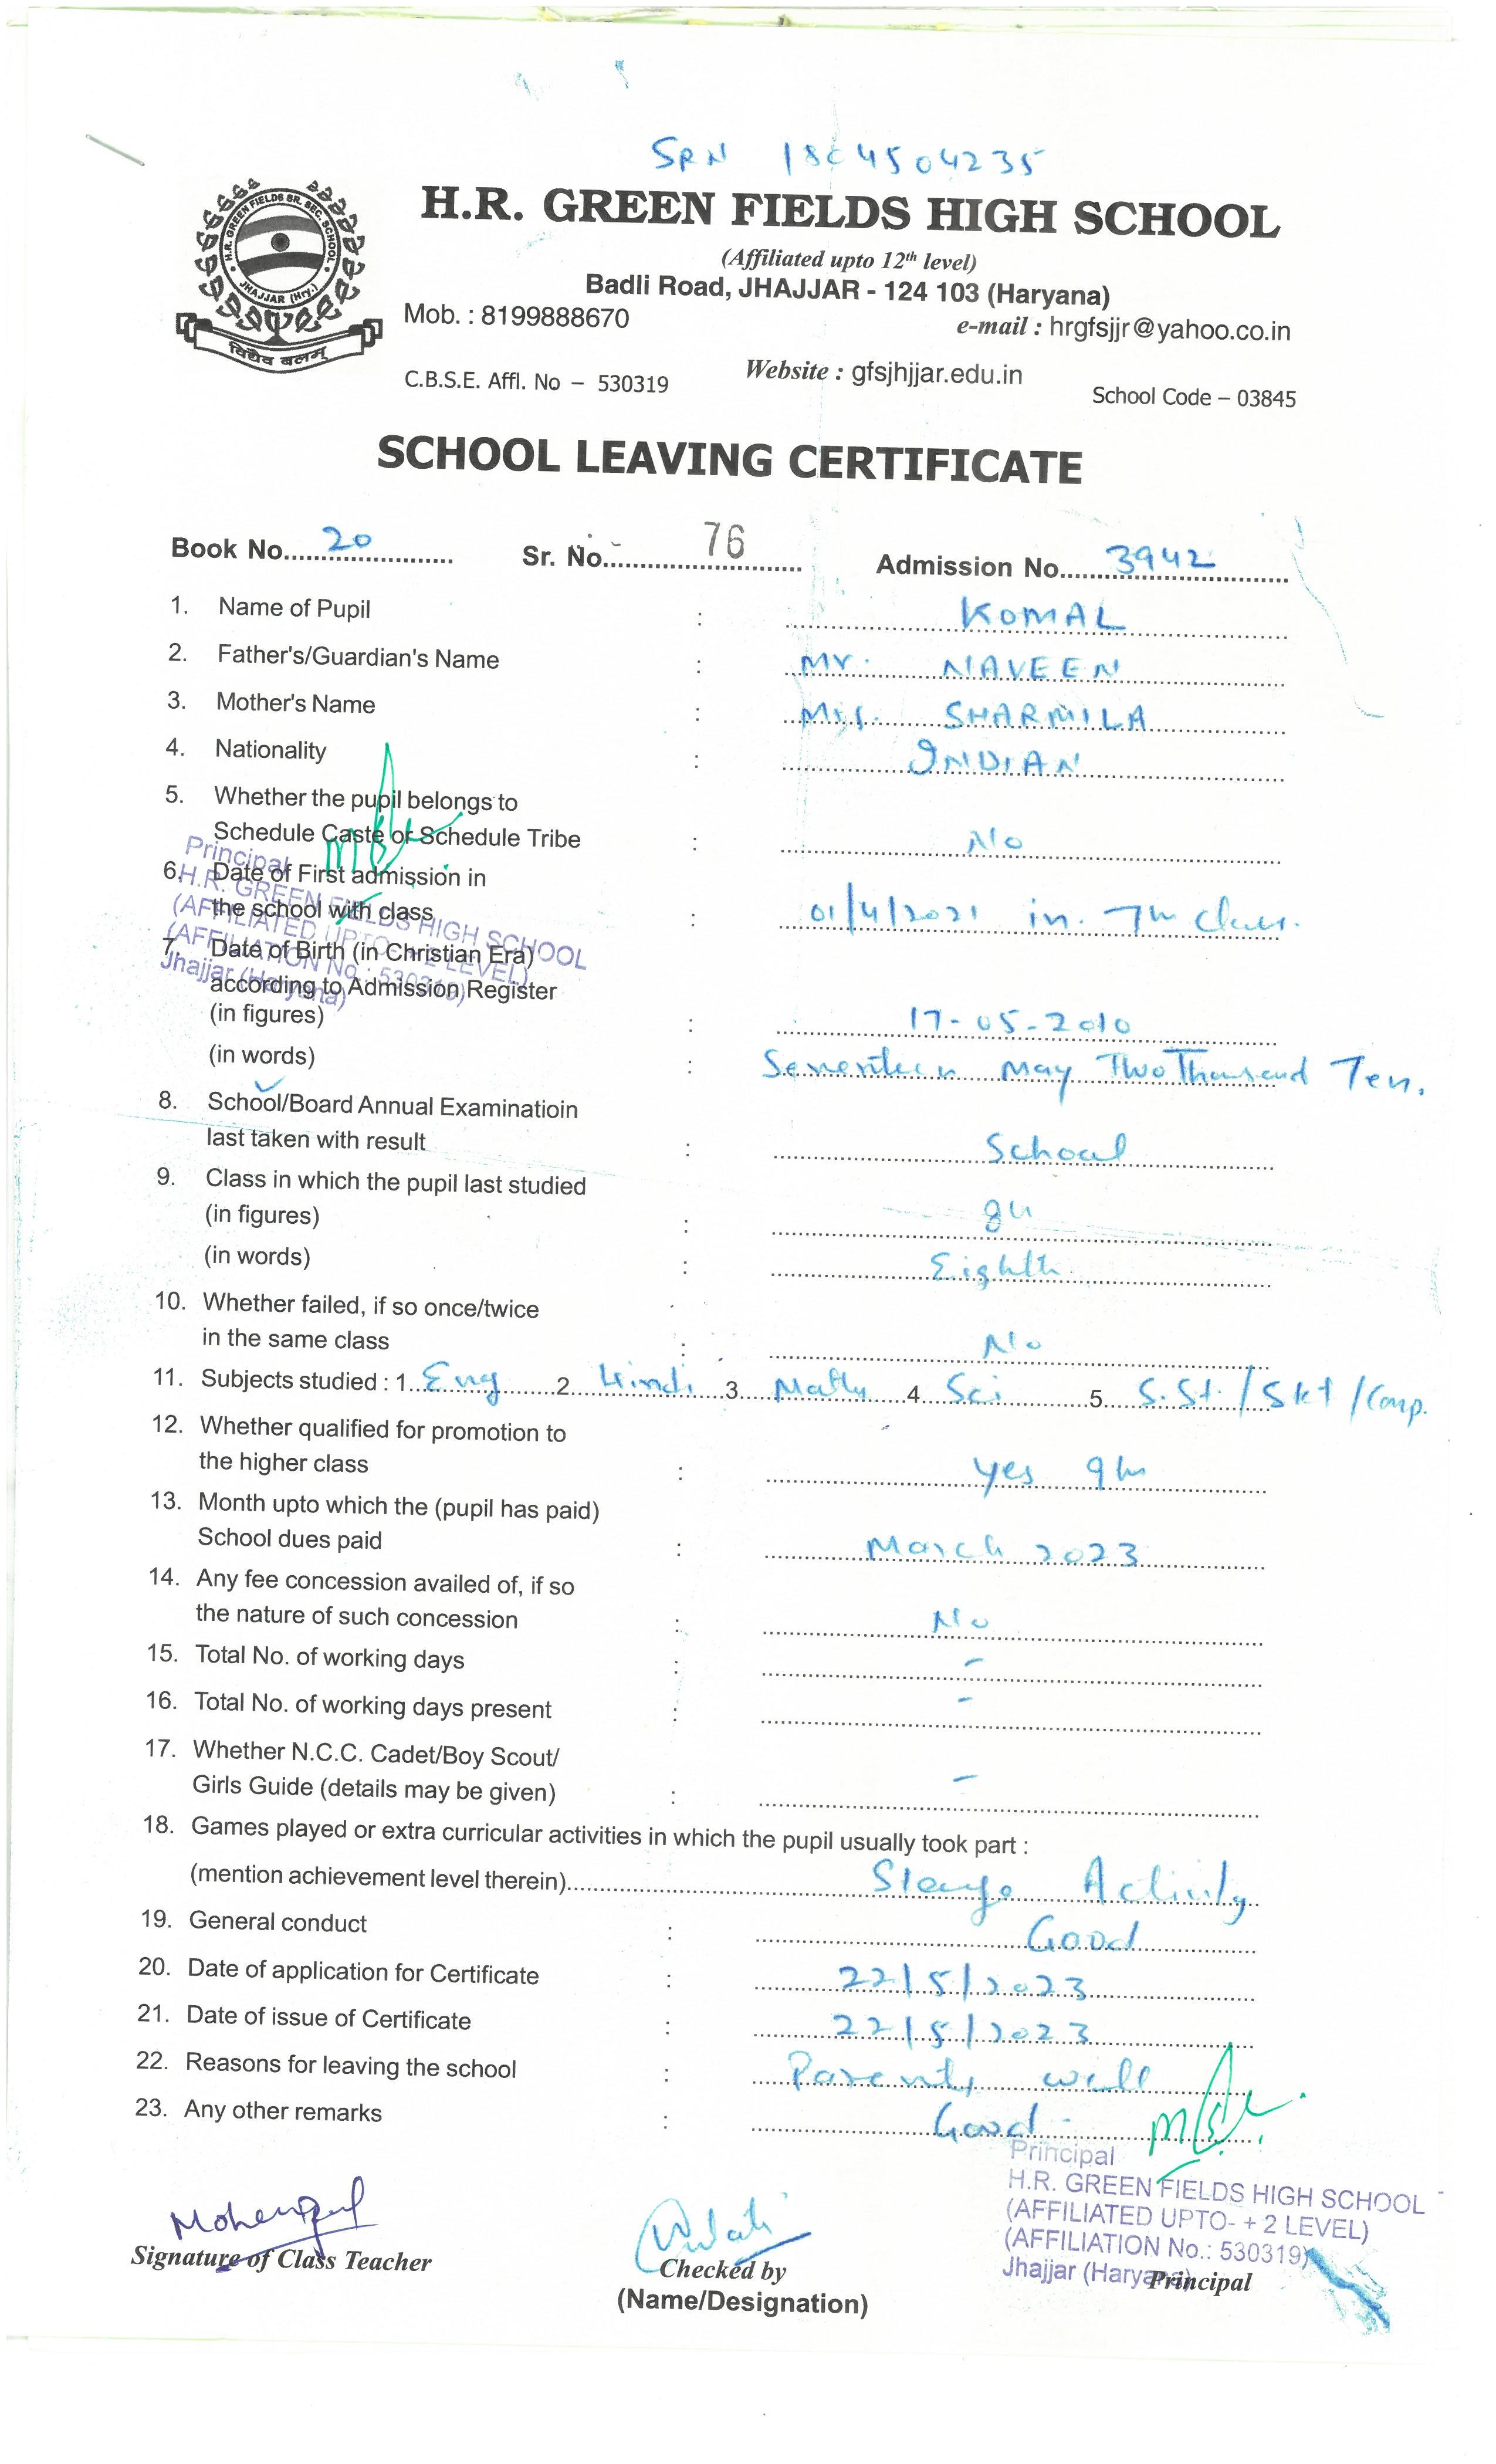 SRN 18C4504235
H.R. GREEN FIELDS SR. SEC. SCHOOL
JHAJJAR (Hry.)
विद्यैव बलम्
H.R. GREEN FIELDS HIGH SCHOOL
(Affiliated upto 12th level)
Badli Road, JHAJJAR - 124 103 (Haryana)
Mob. : 8199888670 e-mail : hrgfsjjr@yahoo.co.in
C.B.S.E. Affl. No – 530319 Website : gfsjhjjar.edu.in School Code – 03845
SCHOOL LEAVING CERTIFICATE
Book No. 20 Sr. No. 76 Admission No. 3942
1. Name of Pupil : KOMAL
2. Father's/Guardian's Name : Mr. NAVEEN
3. Mother's Name : Mrs. SHARMILA
4. Nationality : INDIAN
5. Whether the pupil belongs to
Schedule Caste or Schedule Tribe : No
6. Date of First admission in
the school with class : 01/4/2021 in 7th Class.
7. Date of Birth (in Christian Era)
according to Admission Register
(in figures) : 17-05-2010
(in words) : Seventeen May Two Thousand Ten.
Principal
H.R. GREEN FIELDS HIGH SCHOOL
(AFFILIATED UPTO- + 2 LEVEL)
(AFFILIATION No.: 530319)
Jhajjar (Haryana)
8. School/Board Annual Examinatioin
last taken with result : School
9. Class in which the pupil last studied
(in figures) : 8th
(in words) : Eighth
10. Whether failed, if so once/twice
in the same class : No
11. Subjects studied : 1. Eng 2. Hindi 3. Maths 4. Sci 5. S.St. / Skt / Comp.
12. Whether qualified for promotion to
the higher class : Yes 9th
13. Month upto which the (pupil has paid)
School dues paid : March 2023
14. Any fee concession availed of, if so
the nature of such concession : No
15. Total No. of working days : -
16. Total No. of working days present : -
17. Whether N.C.C. Cadet/Boy Scout/
Girls Guide (details may be given) : -
18. Games played or extra curricular activities in which the pupil usually took part :
(mention achievement level therein) Stage Activity
19. General conduct : Good
20. Date of application for Certificate : 22/5/2023
21. Date of issue of Certificate : 22/5/2023
22. Reasons for leaving the school : Parents will
23. Any other remarks : Good
Principal
H.R. GREEN FIELDS HIGH SCHOOL
(AFFILIATED UPTO- + 2 LEVEL)
(AFFILIATION No.: 530319)
Jhajjar (Haryana)
Signature of Class Teacher Checked by Principal
(Name/Designation)